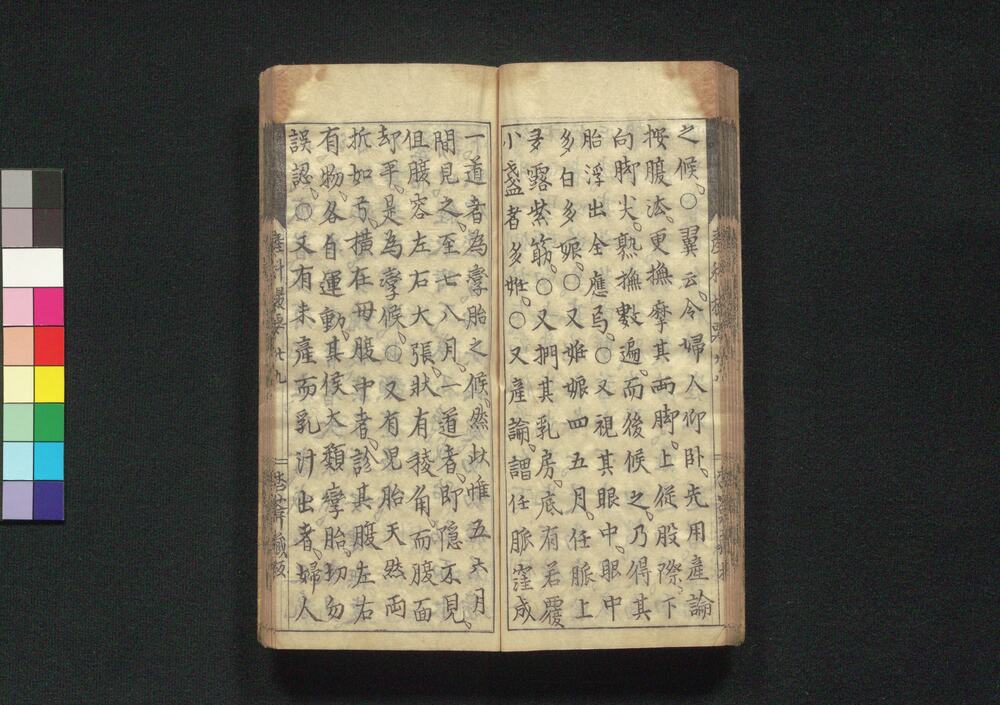 之候、〇翼云、令婦人仰臥、先用産論
按腹法、更撫摩其両脚、上従股際、下
向脚尖、熟撫數遍、而後候之、乃得其
胎浮出全應焉、〇又視其眼中、眼中
多白多娠、〇又姙娠四五月、任脈上
多露紫筋、〇又捫其乳房、底有若覆
小盞者多姙、〇又産論、謂任脈窪成
一道者為孿胎之候、然此惟五六月
間見之、至七八月、一道者、即隠不見、
但腹容左右大張、狀有稜角、而腹面
却平、是為孿候、〇又有児胎天然両
折如弓、横在母腹中者、診其腹左右
有物、各自運動、其候大類孿胎、切勿
誤認、〇又有未産而乳汁出者、婦人
産科 廿九